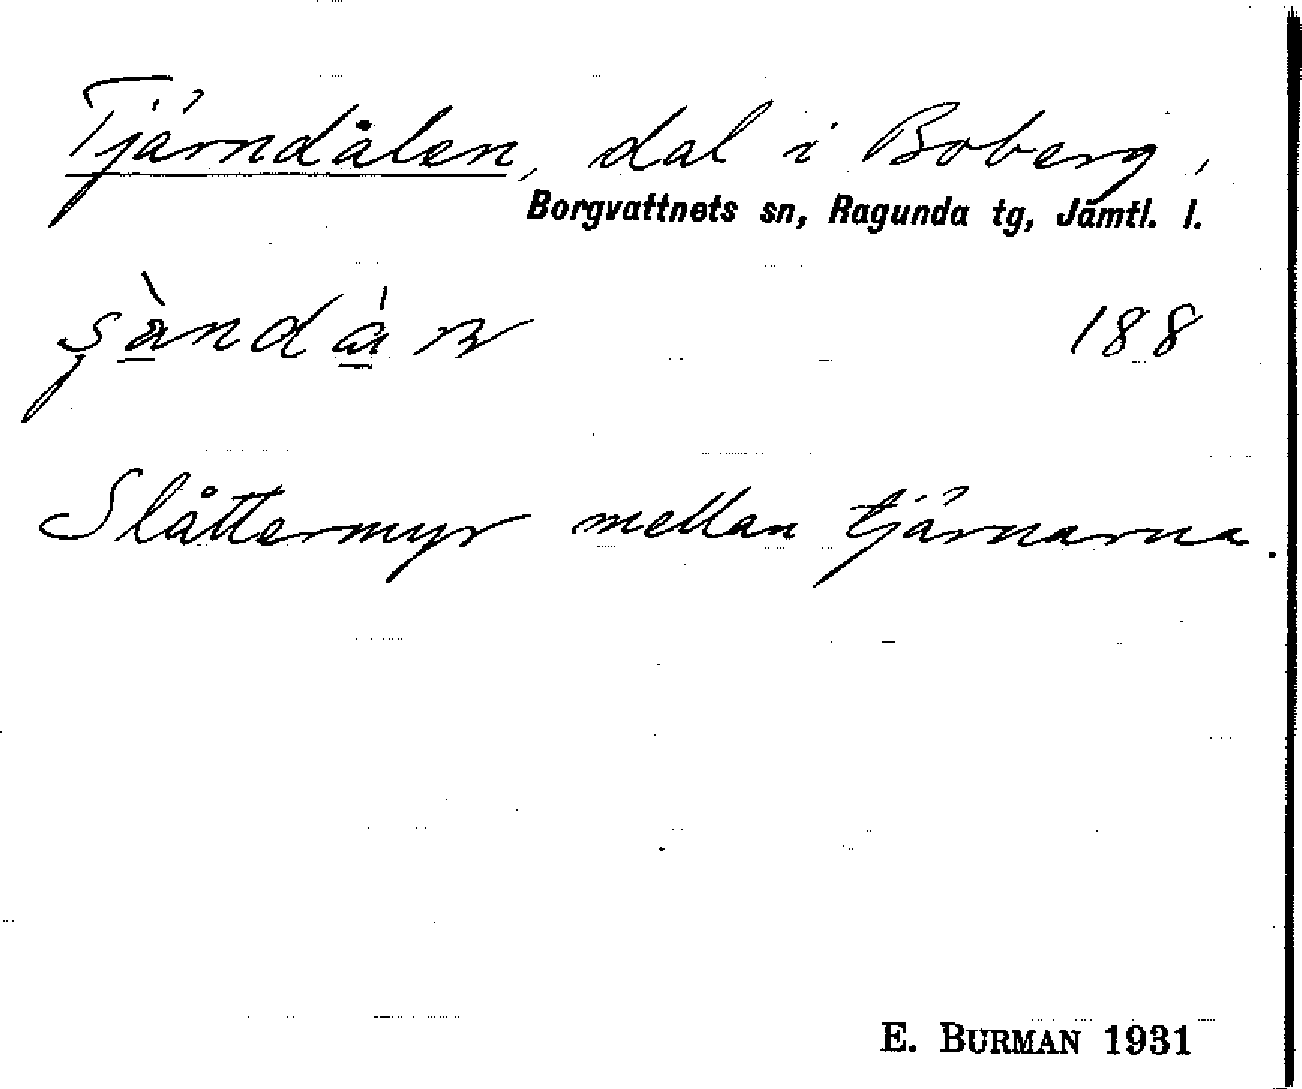 Tjärndålen, dal i Boberg,
Borgvattnets sn, Ragunda tg, Jämtl. l.
188
Slåttermyr mellan tjärnarna.
E. BURMAN 1931